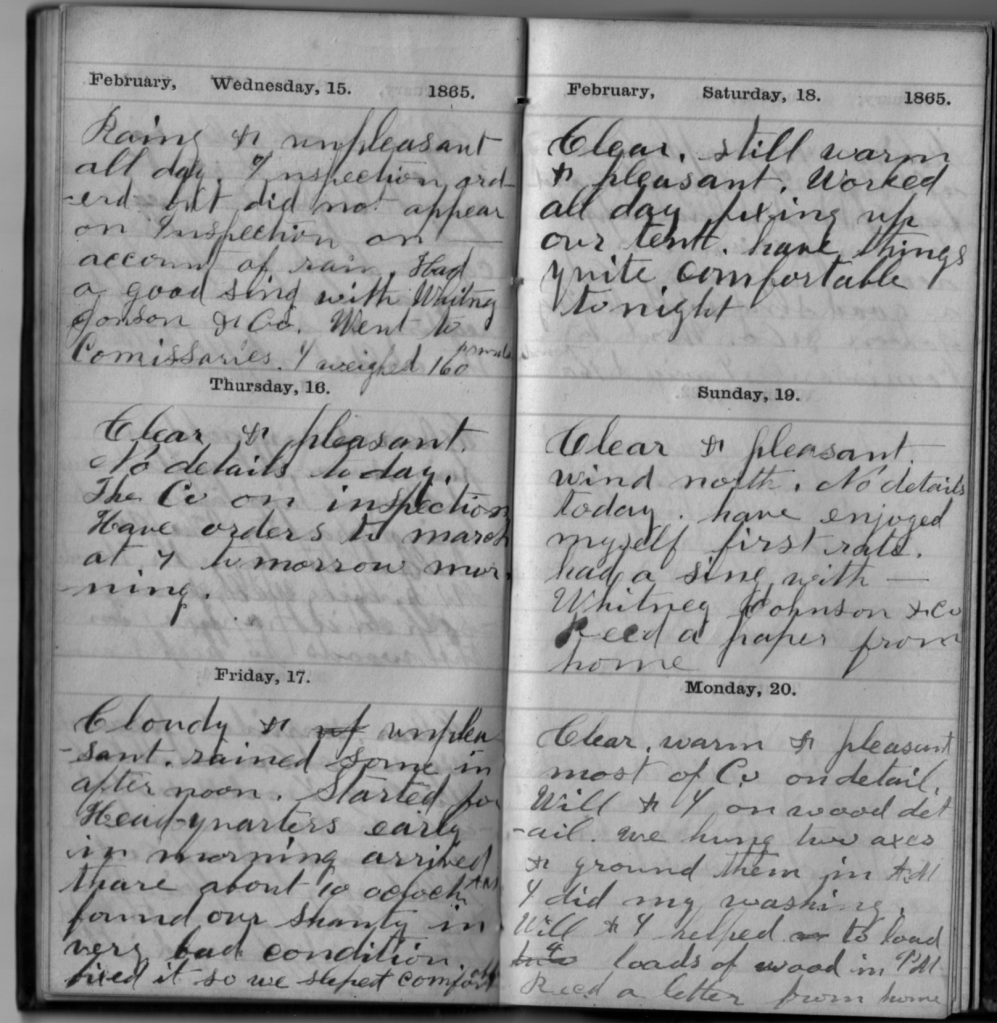 February, Wednesday, 15. 1865.
Raing & unpleasant
all day. I nspection ord
-erd but did not appear
on Inspection on —
account of rain. Had
a good sing with Whitney
Jonson & Co. Went to
Comissaries. I weighed 160 pounds
Thursday, 16.
Clear & pleasant.
No details today.
The Co on inspection
Have orders to march
at 7 tomorrow mor-
-ning.
Friday, 17.
Cloudy & unplea
-sant. rained some in
after noon. Started for
Head-quarters early
in morning arrived
thare about 10 ocloch AM
found our shanty in
very bad condition
fixed it so we slept comfort
February, Saturday, 18. 1865.
Clear. still warm
& pleasant. Worked
all day fixing up
our tentt. have things
quite comfortable
to night
Sunday, 19.
Clear & pleasant.
wind north. No details
today. have enjoyed
myself first rate.
had a sing with —
Whitney Johnson & Co
Reed a paper from
home
Monday, 20.
Clear. warm & pleasant
most of Co on detail.
Will & I on wood det
-ail. we hung two axes
& ground them in AM
I did my washing.
Will & I helped to load
4 loads of wood in PM.
Reed a letter from home